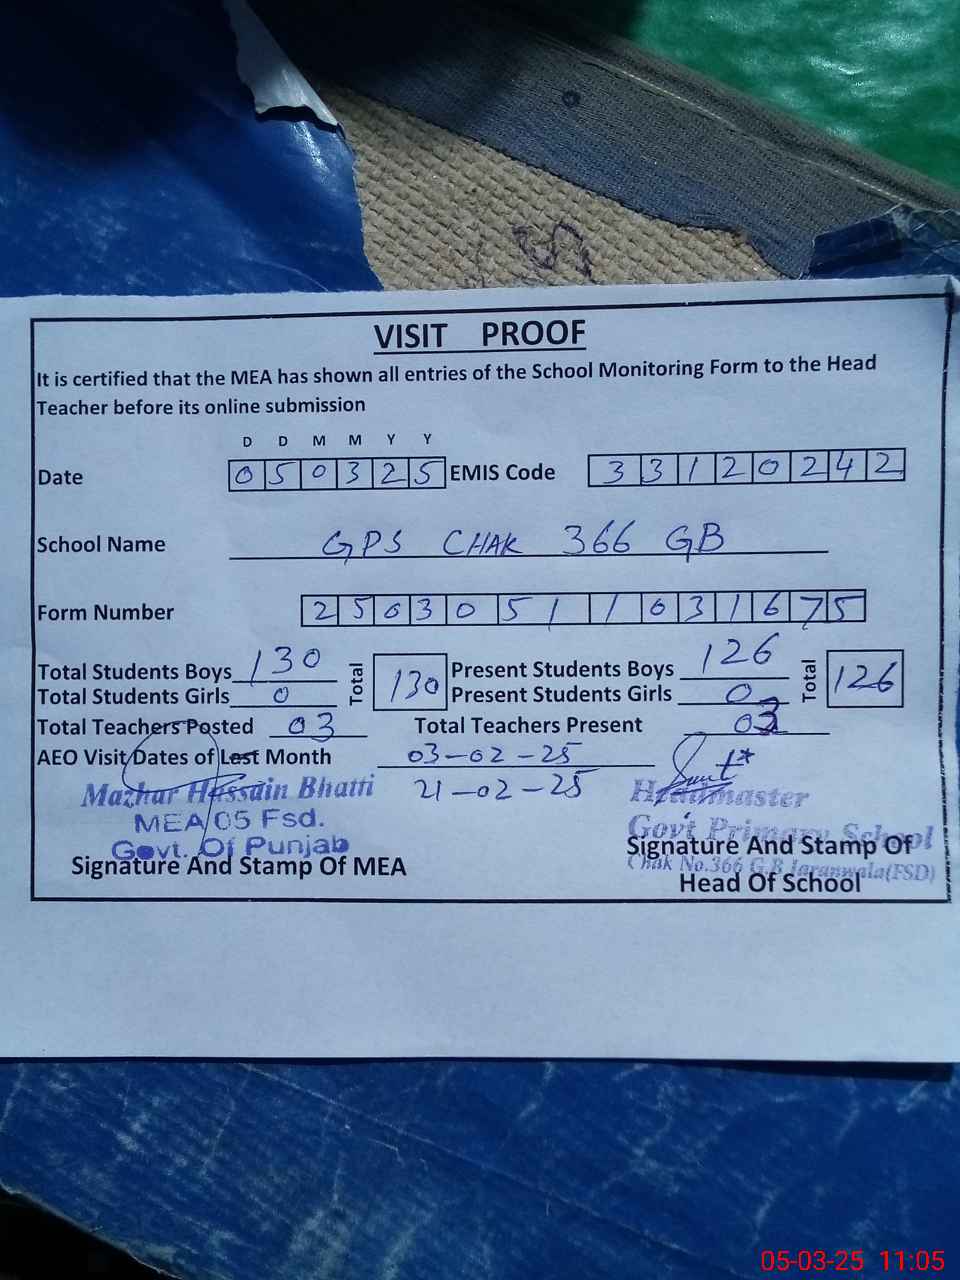 VISIT PROOF
It is certified that the MEA has shown all entries of the School Monitoring Form to the Head
Teacher before its online submission
D D M M Y Y
Date 050325 EMIS Code 33120242
School Name GPS CHAK 366 GB
Form Number 25030511031675
Total Students Boys 130 Total 130 Present Students Boys 126 Total 126
Total Students Girls 0 Present Students Girls 0
Total Teachers Posted 03 Total Teachers Present 03
AEO Visit Dates of Last Month 03-02-25
21-02-25
Mazhar Hassain Bhatti
MEA 05 Fsd.
Govt. Of Punjab
Signature And Stamp Of MEA
Headmaster
Govt Primary School
Chak No.366 G.B Jaranwala(FSD)
Signature And Stamp Of
Head Of School
05-03-25 11:05